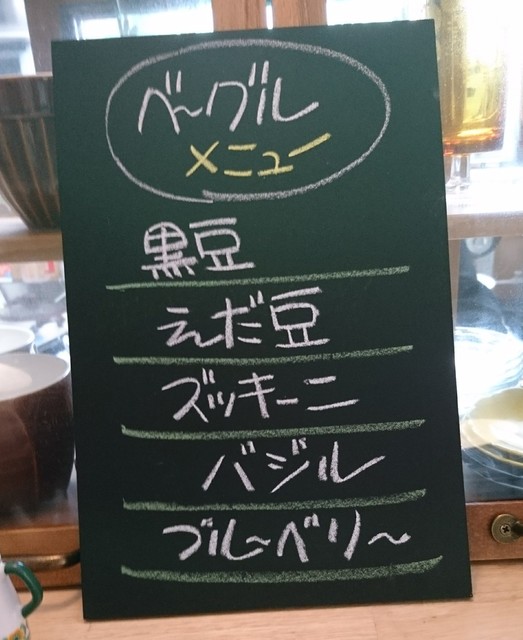 ベーグル
メニュー
黒豆
えだ豆
ズッキーニ
バジル
ブルーベリー